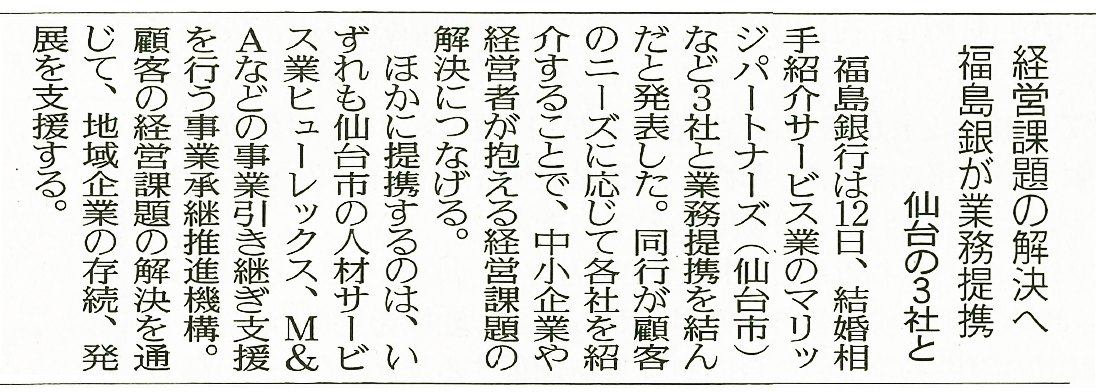 経営課題の解決へ
福島銀が業務提携
仙台の3社と
福島銀行は12日、結婚相
手紹介サービス業のマリッ
ジパートナーズ（仙台市）
など3社と業務提携を結ん
だと発表した。同行が顧客
のニーズに応じて各社を紹
介することで、中小企業や
経営者が抱える経営課題の
解決につなげる。
ほかに提携するのは、い
ずれも仙台市の人材サービ
ス業ヒューレックス、M&
Aなどの事業引き継ぎ支援
を行う事業承継推進機構。
顧客の経営課題の解決を通
じて、地域企業の存続、発
展を支援する。